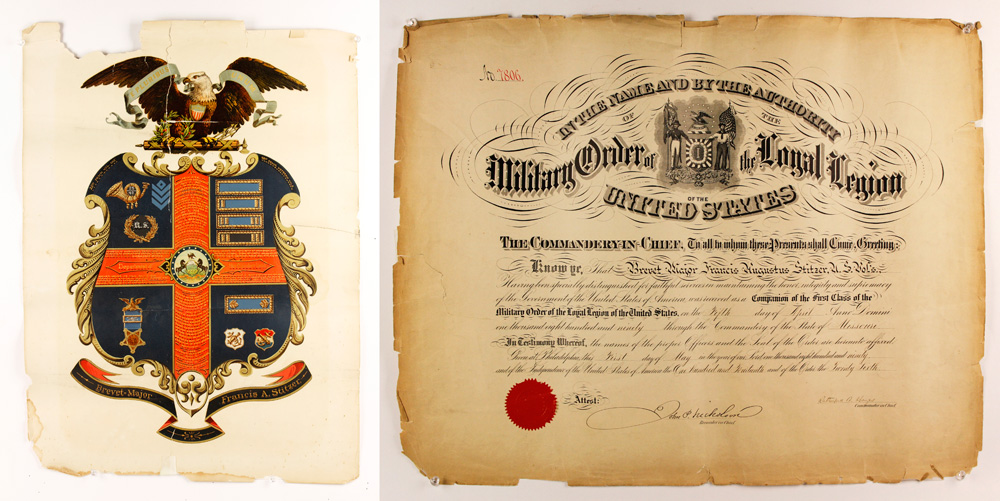 U.S.
Brevet-Major Francis A. Stitzer
No. 7806.
IN THE NAME AND BY THE AUTHORITY
OF THE
Military Order of the Loyal Legion
OF THE
UNITED STATES
THE COMMANDERY-IN-CHIEF, To all to whom these Presents shall Come, Greeting:
Know ye, That Brevet Major Francis Augustus Stitzer, U.S. Vols.
Having been specially distinguished for faithful service in maintaining the honor, integrity and supremacy
of the Government of the United States of America, was received as a Companion of the First Class of the
Military Order of the Loyal Legion of the United States, on the Fifth day of April Anno Domini
one thousand eight hundred and ninety through the Commandery of the State of Missouri.
In Testimony Whereof, the names of the proper Officers and the Seal of the Order are hereto affixed.
Given at Philadelphia, this First day of May in the year of our Lord one thousand eight hundred and ninety
and of the Independence of the United States of America the One hundred and fourteenth and of the Order the Twenty Sixth.
Attest:
John P. Nicholson
Recorder-in-Chief
Commander-in-Chief